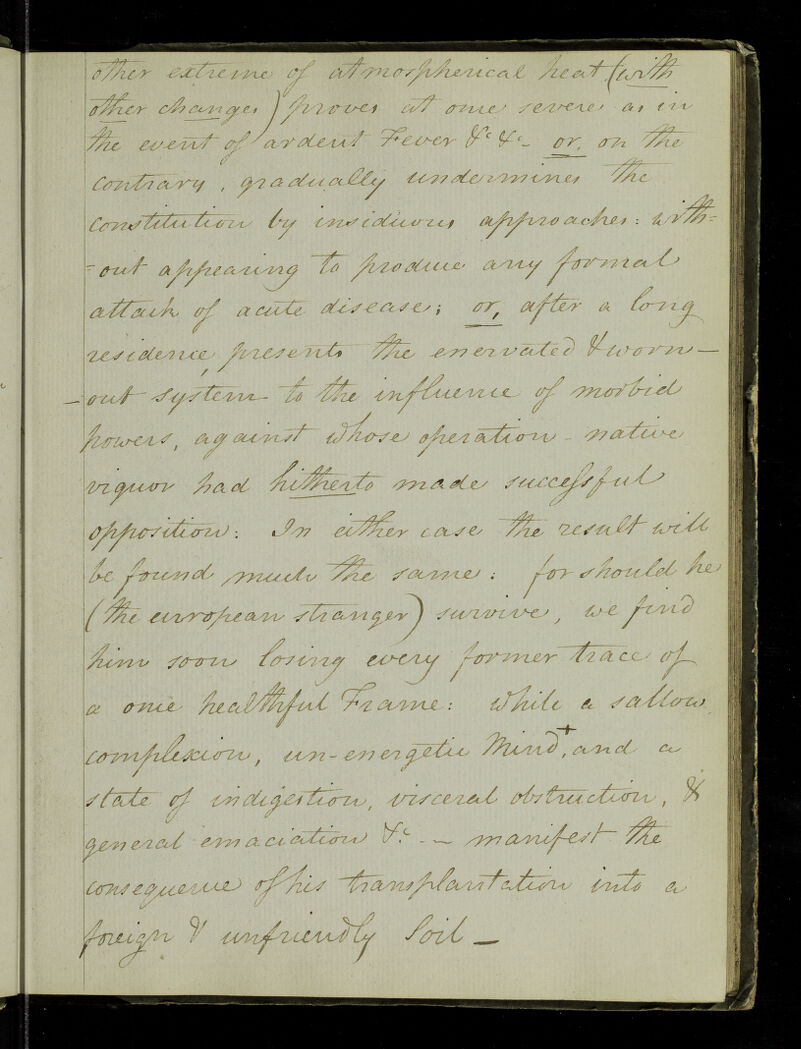 other extreme of atmospherical heat (with
other changes) proves at once severe as in
the event of ardent Fever &c &c - or, on the
contrary, gradually undermines the
constitution by insiduous approaches: with=
=out appearing to produce any formal
attack of acute disease; or, after a long
residence, presents the enervated & worn-
-out system to the influence of morbid
powers, against whose operation - native
vigour had hitherto made successful
opposition: In either case the result will
be found much the same: for should he
(the european stranger) survive, we find
him soon losing every former trace of
a once healthful Frame: while a sallow
complexion, un-energetic Mind,+ and a
state of indigestion, visceral obstruction, &
general emaciation &c. - manifest the
consequence of his transplantation into a
foreign & unfriendly Soil -